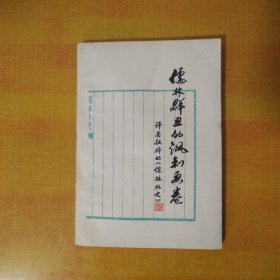 儒林群丑的讽刺画卷
评吴敬梓的《儒林外史》